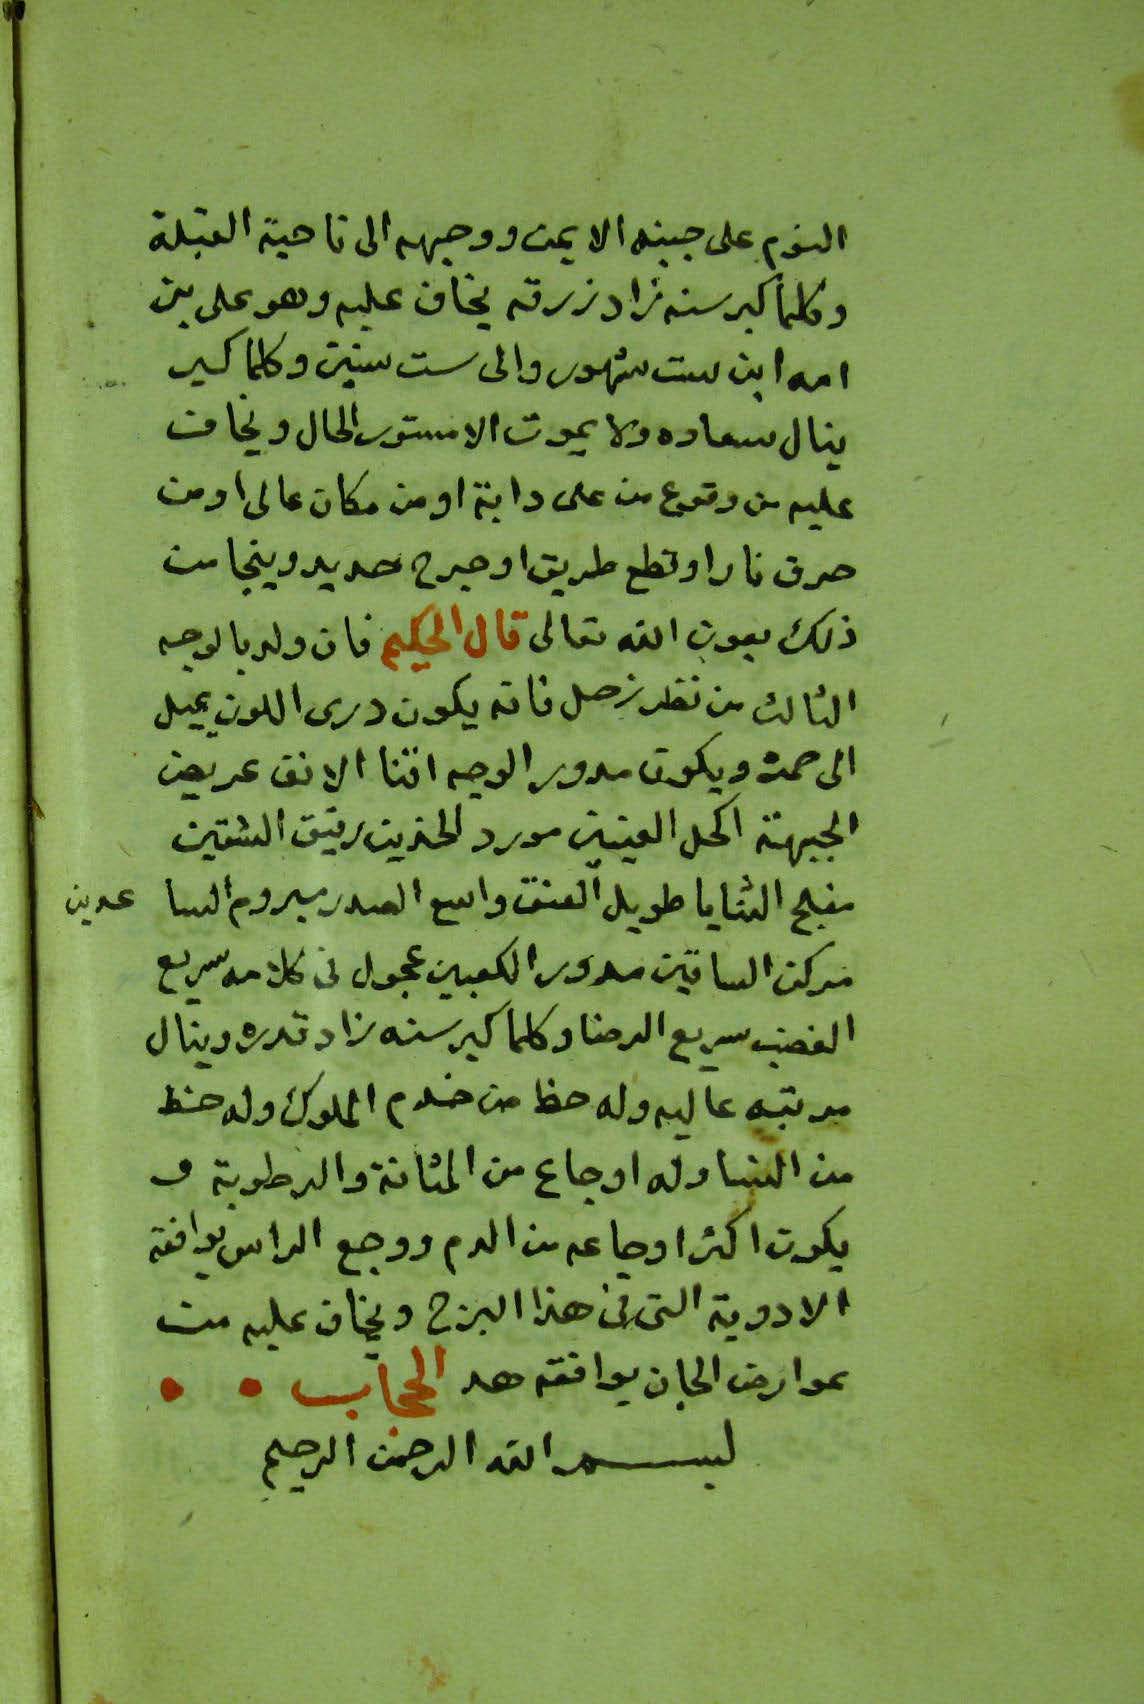 النوم على جبينه الايمن ووجهه الى ناحية القبلة
وكلما كبر سنه زاد زرقه يخاف عليه وهو على يدى
امه ابن ست شهور والى ست سنين وكلما كبر
ينال سعاده ولا يموت الا مستور الحال ويخاف
عليه من وقوع من على دابة او من مكان عالى او من
حرق نار او قطع طريق او جرح حديد وينجا من
ذلك بعون الله تعالى قال الحكيم فان ولد بالوجه
الثالث من نظر زحل فانه يكون درى اللون يميل
الى حمره ويكون مدور الوجه اقنا الانف عريض
الجبهة اكحل العينين مورد الخدين رقيق الشفتين
مفلج الثنايا طويل العنق واسع الصدر مبروم السا عدين
مركن الساقين مدور الكعبين عجول فى كلامه سريع
الغضب سريع الرضا وكلما كبر سنه زاد قدره وينال
مرتبه عاليه وله حظا من خدم الملوك وله حظ
من النسا وله اوجاع من المثانة والرطوبة و
يكون اكثر اوجاعه من الدم ووجع الراس يوافقه
الادوية التى فى هذا البرج ويخاف عليه من
عوارض الجان يوافقه هد الحجاب
بسم الله الرحمن الرحيم